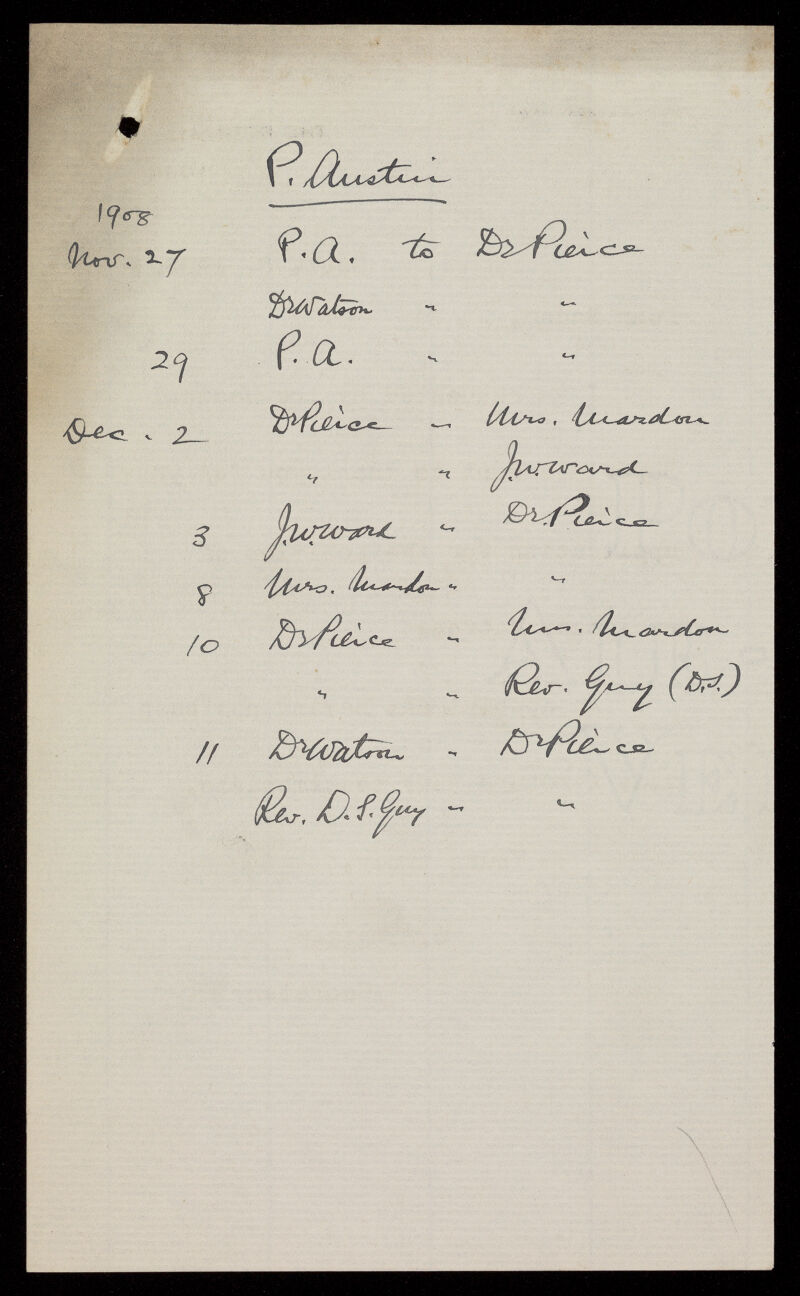 P. Austin
1908
Nov. 27 P.A. to Dr Pierce
Dr Watson " "
29 P.A. " "
Dec. 2 Dr Pierce " Mrs. Mardon
" " J.W. Ward
3 J.W. Ward " Dr. Pierce
8 Mrs. Mardon " "
10 Dr Pierce " Mrs. Mardon
" " Rev. Guy (D.S.)
11 Dr Watson " Dr Pierce
Rev. D.S. Guy " "